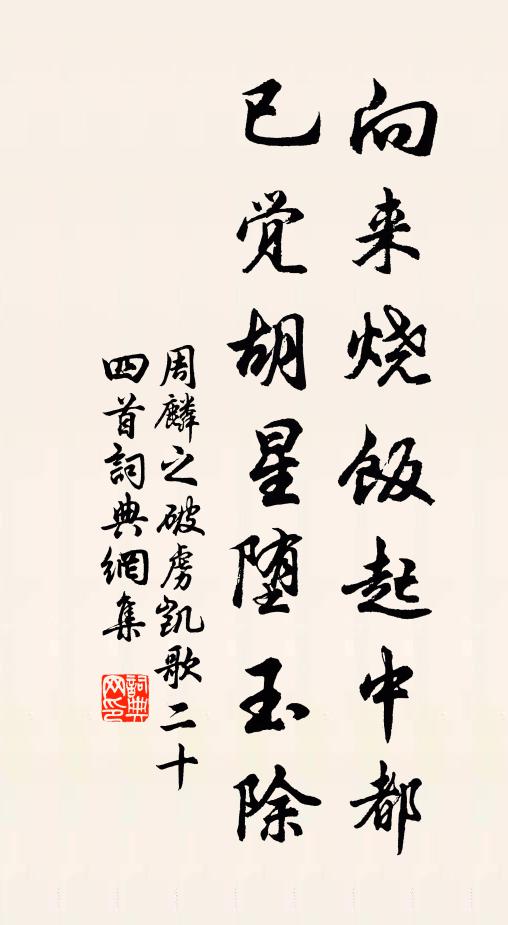 向来烧饭起中都
已觉胡星堕玉除
周麟之破虏凯歌二十
四首詞典網集
詞典网印